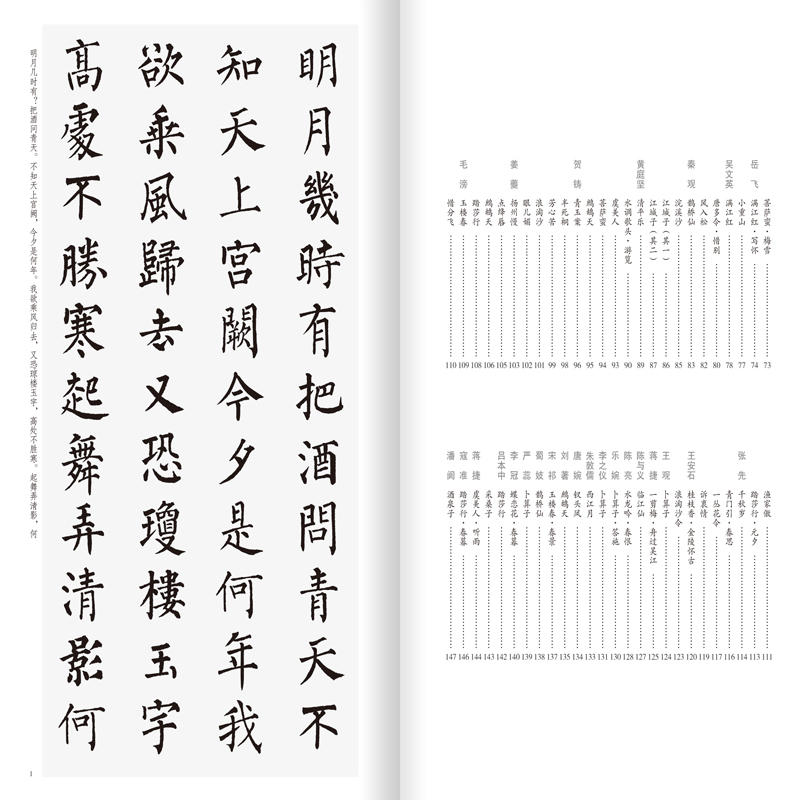 菩萨蛮·梅雪 73
岳飞 满江红·写怀 74
小重山 77
吴文英 满江红 78
唐多令·惜别 80
风入松 82
秦观 鹊桥仙 83
浣溪沙 85
江城子(其一) 86
江城子(其二) 87
黄庭坚 清平乐 89
水调歌头·游览 90
虞美人 93
菩萨蛮 94
鹧鸪天 95
贺铸 青玉案 96
半死桐 98
芳心苦 99
浪淘沙 101
眼儿媚 102
姜夔 扬州慢 103
点绛唇 105
鹧鸪天 106
踏莎行 108
毛滂 玉楼春 109
惜分飞 110
渔家傲 111
踏莎行·元夕 113
张先 千秋岁 114
青门引·春思 116
一丛花令 117
诉衷情 119
王安石 桂枝香·金陵怀古 120
浪淘沙令 123
王观 卜算子 124
蒋捷 一剪梅·舟过吴江 125
陈与义 临江仙 127
陈亮 水龙吟·春恨 128
乐婉 卜算子·答施 130
李之仪 卜算子 131
朱敦儒 西江月 133
唐婉 钗头凤 134
刘著 鹧鸪天 135
宋祁 玉楼春·春景 137
蜀妓 鹊桥仙 138
严蕊 卜算子 139
李冠 蝶恋花·春暮 140
吕本中 踏莎行 142
采桑子 143
蒋捷 虞美人·听雨 144
寇准 踏莎行·春暮 146
潘阆 酒泉子 147
明月幾時有把酒問青天不
知天上宮闕今夕是何年我
欲乘風歸去又恐瓊樓玉宇
高處不勝寒起舞弄清影何
明月几时有?把酒问青天。不知天上宫阙,今夕是何年。我欲乘风归去,又恐琼楼玉宇,高处不胜寒。起舞弄清影,何
1